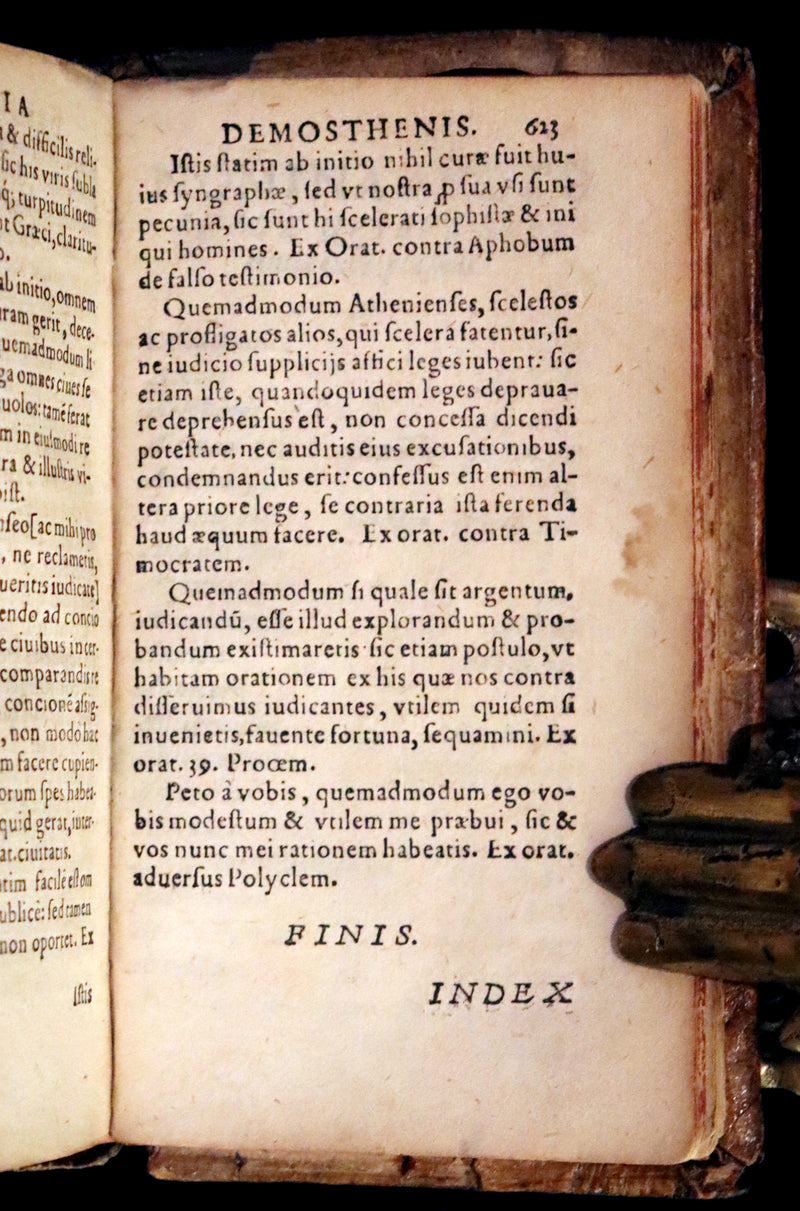 IA
& difficilis reli-
sic his viris
turpitudinem
Græci, claritu-
ab initio, omnem
gerit, dece-
uemadmodum li
omnes ciues se
uolos: tamē ferat
m in eiusmodi re
ra & illustris vi-
ist.
[ac mihi pro
, ne reclametis,
ueritis iudicate]
endo ad concio
e ciuibus inter-
comparandi re
, non modo hac
m facere cupien-
orum spes habea-
quid gerat, iuter-
at. ciuitatis.
facilè
ublicè: sed tamen
non oportet. Ex
Iſtis
DEMOSTHENIS. 623
Iſtis ſtatim ab initio nihil curæ fuit hu-
ius ſyngraphæ, ſed vt noſtra ꝓ ſua vſi ſunt
pecunia, ſic ſunt hi ſcelerati ſophiſtæ & ini
qui homines. Ex Orat. contra Aphobum
de falſo teſtimonio.
Quemadmodum Athenienſes, ſceleſtos
ac profligatos alios, qui ſcelera fatentur, ſi-
ne iudicio ſupplicijs affici leges iubent: ſic
etiam iſte, quandoquidem leges depraua-
re deprehenſus eſt, non conceſſa dicendi
poteſtate, nec auditis eius excuſationibus,
condemnandus erit: confeſſus eſt enim al-
tera priore lege, ſe contraria iſta ferenda
haud æquum facere. Ex orat. contra Ti-
mocratem.
Quemadmodum ſi quale ſit argentum,
iudicandū, eſſe illud explorandum & pro-
bandum exiſtimaretis ſic etiam poſtulo, vt
habitam orationem ex his quæ nos contra
diſſeruimus iudicantes, vtilem quidem ſi
inuenietis, fauente fortuna, ſequamini. Ex
orat. 39. Procem.
Peto à vobis, quemadmodum ego vo-
bis modeſtum & vtilem me præbui, ſic &
vos nunc mei rationem habeatis. Ex orat.
aduerſus Polyclem.
FINIS.
INDEX